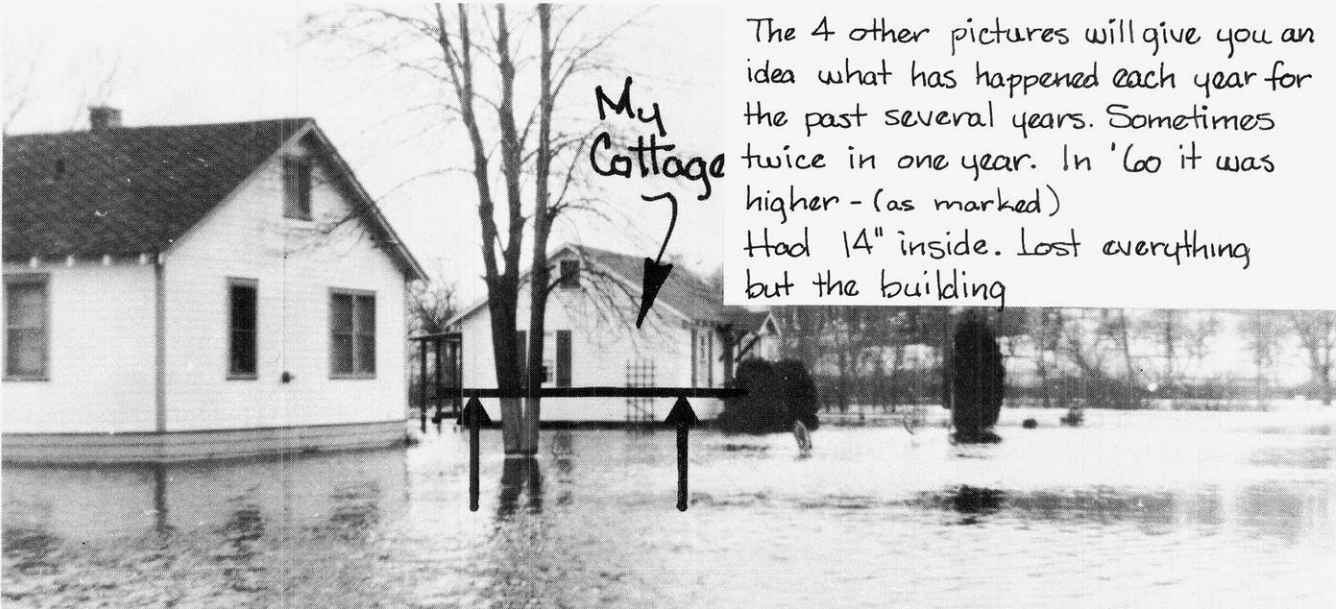 My
Cottage
The 4 other pictures will give you an
idea what has happened each year for
the past several years. Sometimes
twice in one year. In '60 it was
higher - (as marked)
Had 14" inside. Lost everything
but the building